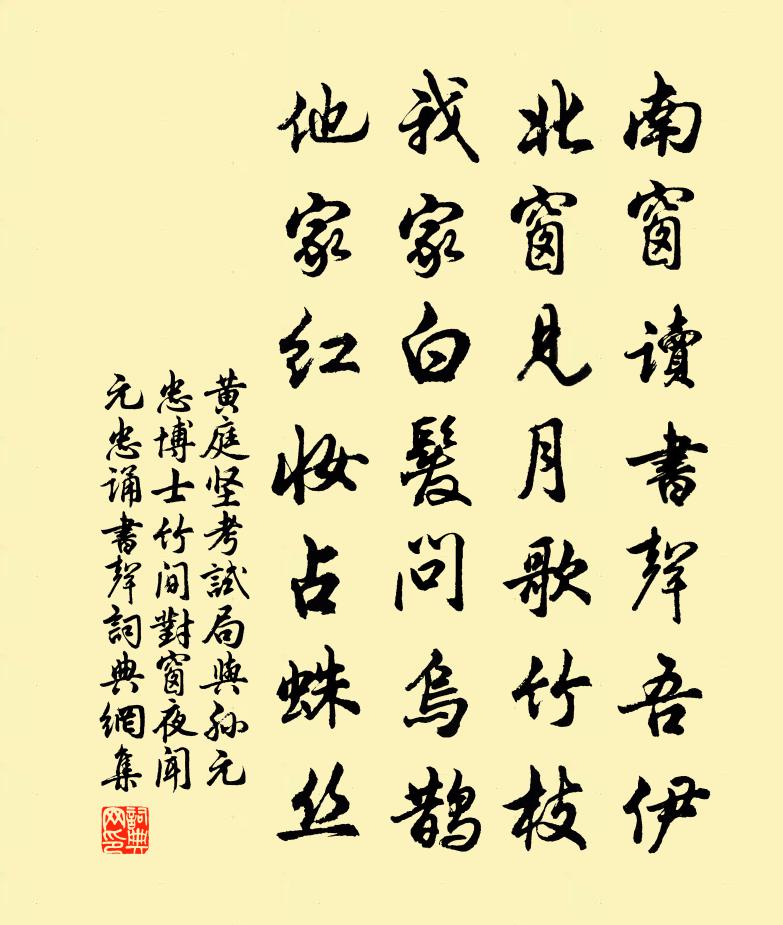 南窗讀書聲吾伊
北窗見月歌竹枝
我家白髮問烏鵲
他家红妆占蛛丝
黄庭坚考試局與孙元
忠博士竹间對窗夜闻
元忠诵書聲詞典網集
詞典网印